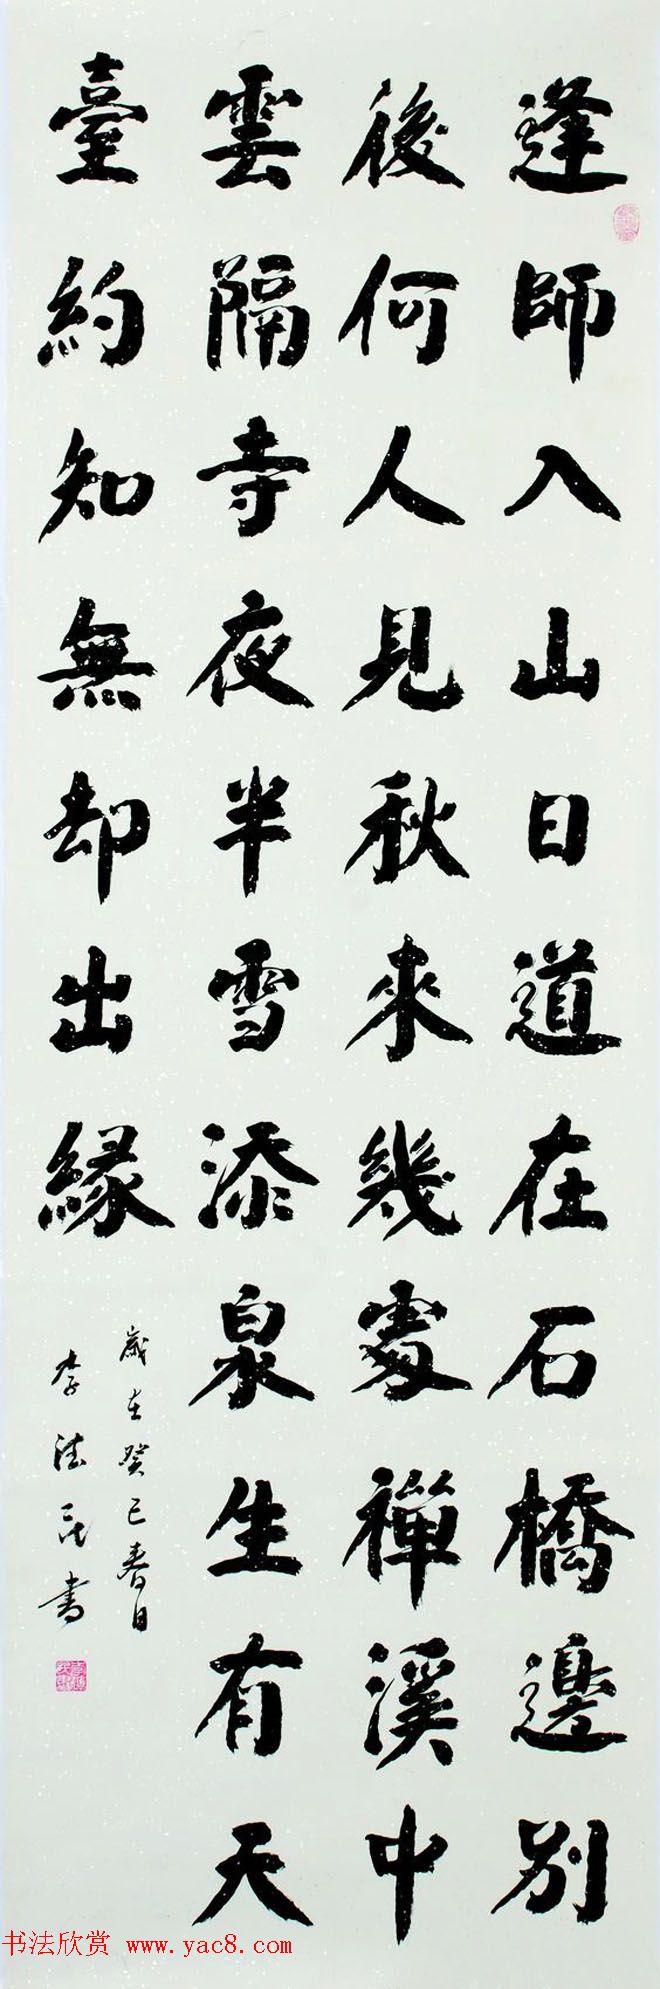 逢師入山日道在石橋邊別
後何人見秋來幾處禪溪中
雲隔寺夜半雪添泉生有天
臺約知無却出緣
歲在癸巳春日
李書
书法欣赏 www.yac8.com